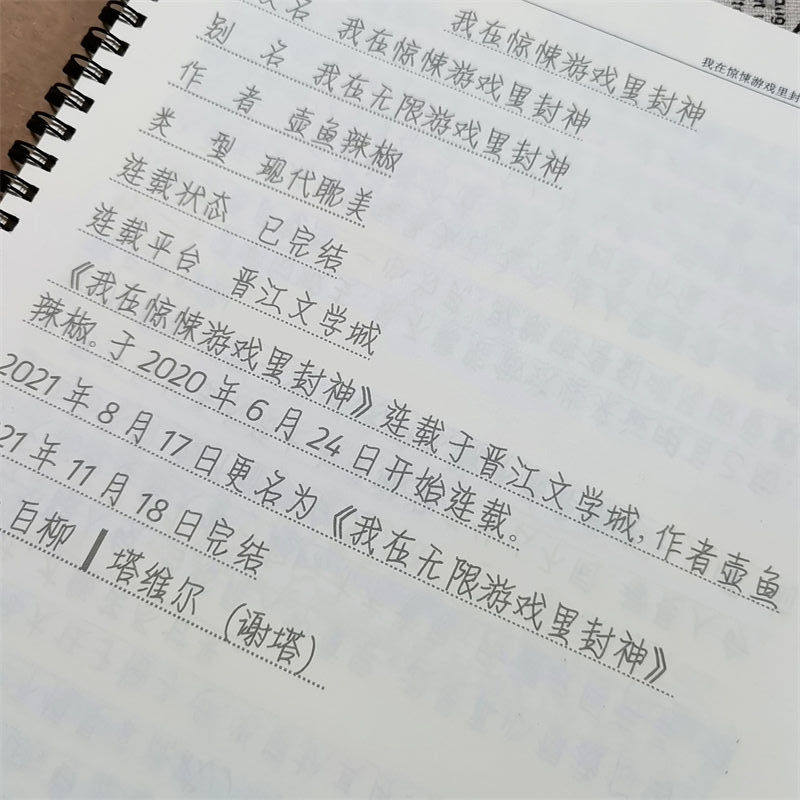 我在惊悚游戏里封
我在惊悚游戏里封神
名 我在惊悚游戏里封神
别 名 我在无限游戏里封神
作 者 壶鱼辣椒
类 型 现代耽美
连载状态 已完结
连载平台 晋江文学城
《我在惊悚游戏里封神》连载于晋江文学城,作者壶鱼
辣椒。于 2020 年 6 月 24 日开始连载。
2021 年 8 月 17 日更名为《我在无限游戏里封神》
21 年 11 月 18 日完结
白柳┃塔维尔(谢塔)